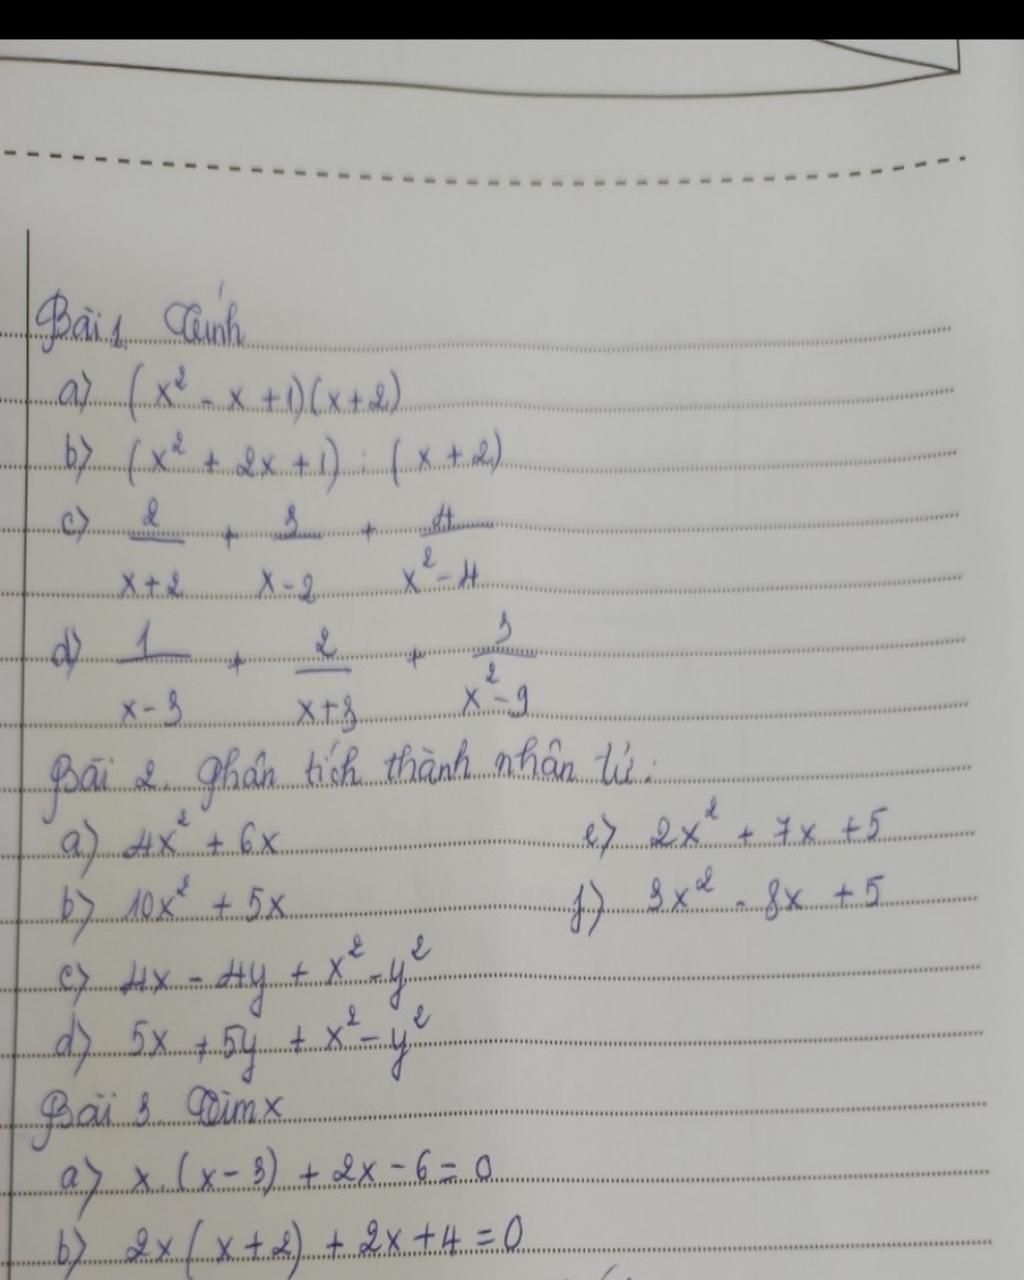 Bài 1. Tính
a) (x² - x + 1)(x + 2)
b) (x² + 2x + 1) : (x + 2)
c) 2/(x+2) + 3/(x-2) + 4/(x²-4)
d) 1/(x-3) + 2/(x+3) + 3/(x²-9)
Bài 2. Phân tích thành nhân tử:
a) 4x² + 6x
e) 2x² + 7x + 5
b) 10x² + 5x
f) 3x² - 8x + 5
c) 4x - 4y + x² - y²
d) 5x + 5y + x² - y²
Bài 3. Tìm x
a) x.(x-3) + 2x - 6 = 0
b) 2x(x+2) + 2x + 4 = 0